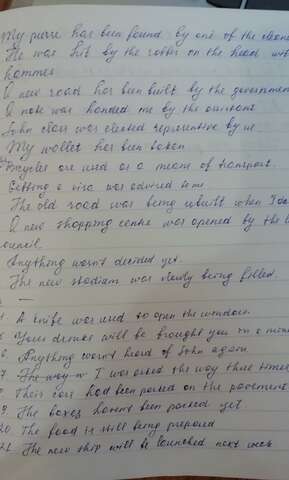 My purse has been found by one of the cleane
He was hit by the robber on the head with
hammer
A new road has been built by the government
A note was handed me by the assistant
John class was elected representative by us
My wallet has been taken
Bicycles are used as a means of transport.
Getting a visa was advised to me
The old road was being rebuilt when I
A new shopping centre was opened by the
council.
Anything wasn't decided yet.
The new stadium was slowly being filled.
—
A knife was used to open the window.
Your drinks will be brought you in a minu
Anything wasn't heard of John again
7 The way w I was asked the way three times
Their cars had been parked on the pavement
9. The boxes haven't been packed yet
20. The food is still being prepared
21. The new ship will be launched next week